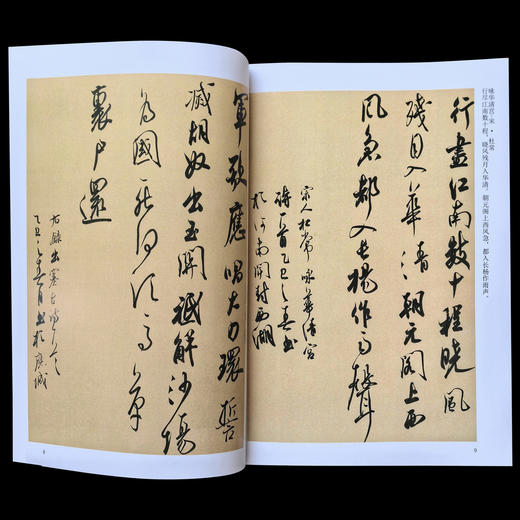 軍歌應唱大刀環誓
滅胡奴出玉關祗解沙場
為國死何須馬革
裹尸還
右錄出塞古
乙 之春月書於
8
咏华清宫 宋·杜常
行尽江南数十程，晓风残月入华清。朝元阁上西风急，都入长杨作雨声。
行盡江南數十程曉風
殘月入華清朝元閣上西
風急都入長楊作雨聲
宋人杜常咏華清宮
詩一首乙 之春書
於河南開封西湖
9